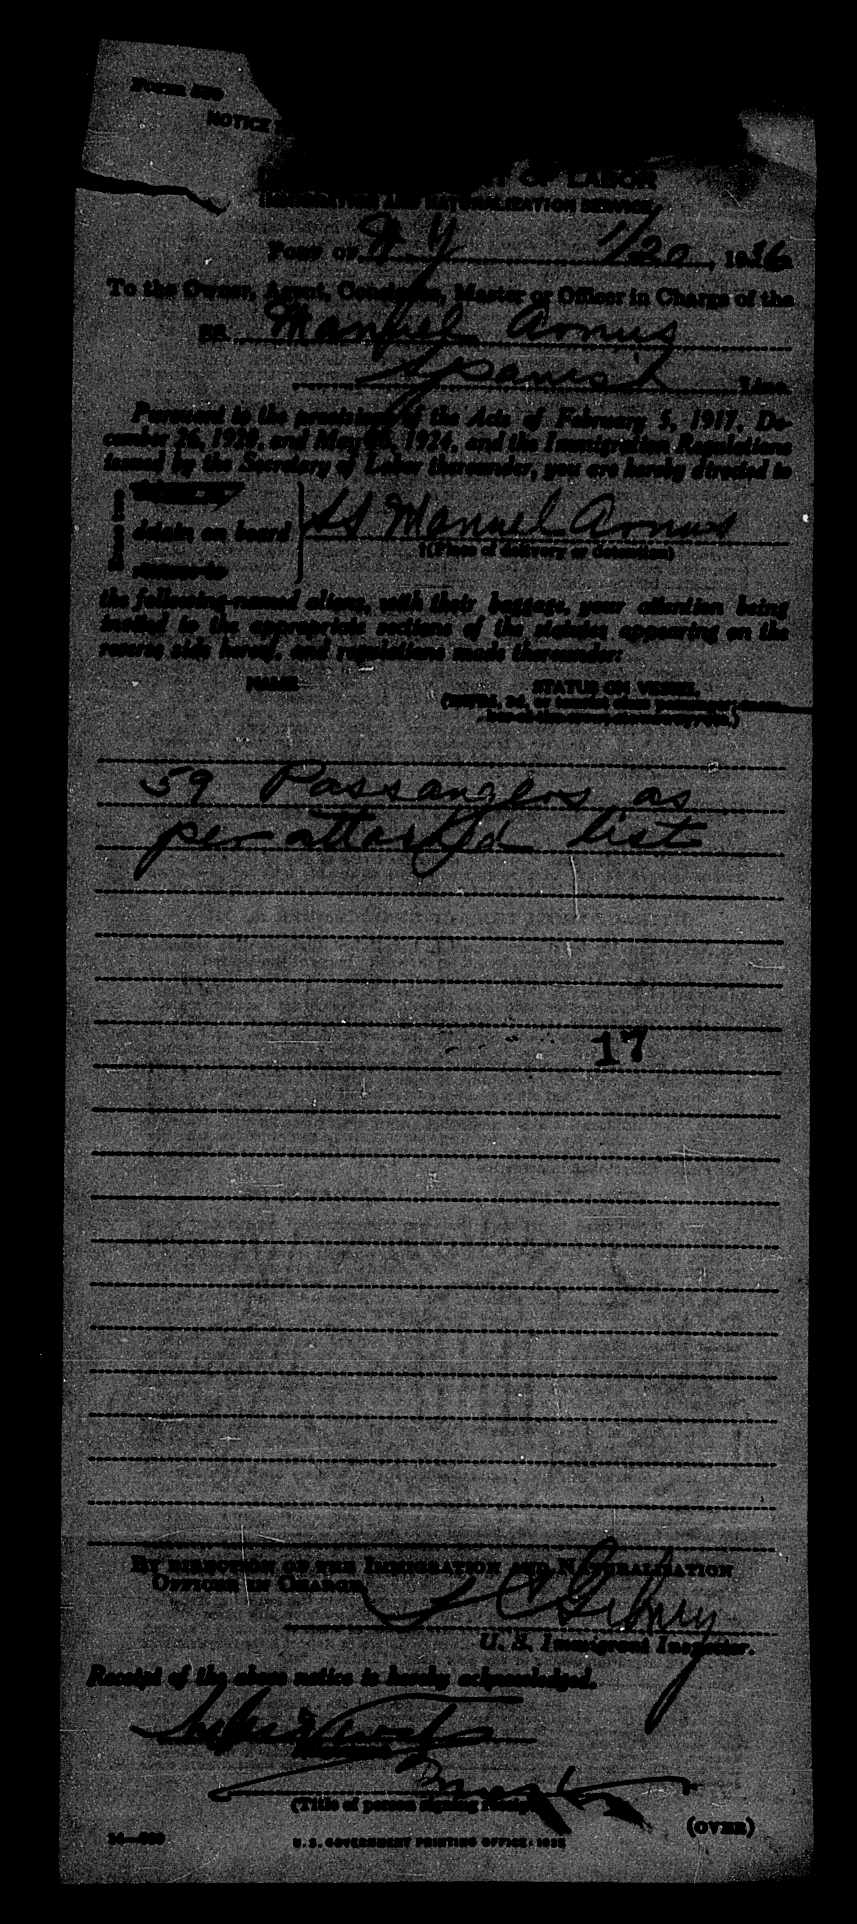 Form 500
NOTICE
OF LABOR
IMMIGRATION AND NATURALIZATION SERVICE
PORT OF N Y 1/20, 1936
To the Owner, Agent, Consignee, Master or Officer in Charge of the
SS. Manuel Arnus
Spanish Line.
Pursuant to the provisions of the Acts of February 5, 1917, De-
cember 26, 1920, and May 26, 1924, and the Immigration Regulations
issued by the Secretary of Labor thereunder, you are hereby directed to
detain on board SS Manuel Arnus
remove to
†(Place of delivery or detention)
the following-named aliens, with their baggage, your attention being
invited to the appropriate sections of the statutes appearing on the
reverse side hereof, and regulations made thereunder:
NAME STATUS ON VESSEL
59 Passangers as
per attached list
17
BY DIRECTION OF THE IMMIGRATION AND NATURALIZATION
OFFICER IN CHARGE
U. S. Immigrant Inspector.
Receipt of the above notice is hereby acknowledged.
(Title of person signing receipt)
(OVER)
U. S. GOVERNMENT PRINTING OFFICE: